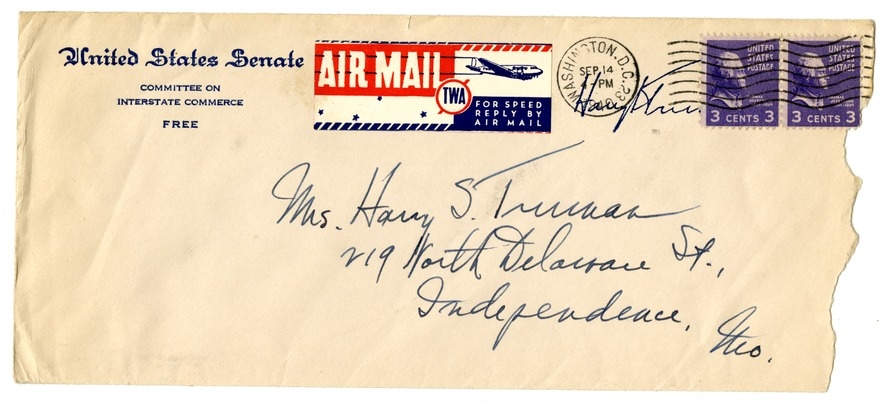 United States Senate
COMMITTEE ON
INTERSTATE COMMERCE
FREE
AIR MAIL
TWA
FOR SPEED
REPLY BY
AIR MAIL
WASHINGTON, D.C. 23
SEP 14
PM
Harry S Trum
UNITED
STATES
POSTAGE
3 CENTS 3
UNITED
STATES
POSTAGE
3 CENTS 3
Mrs. Harry S. Truman
219 North Delaware St.,
Independence,
Mo.